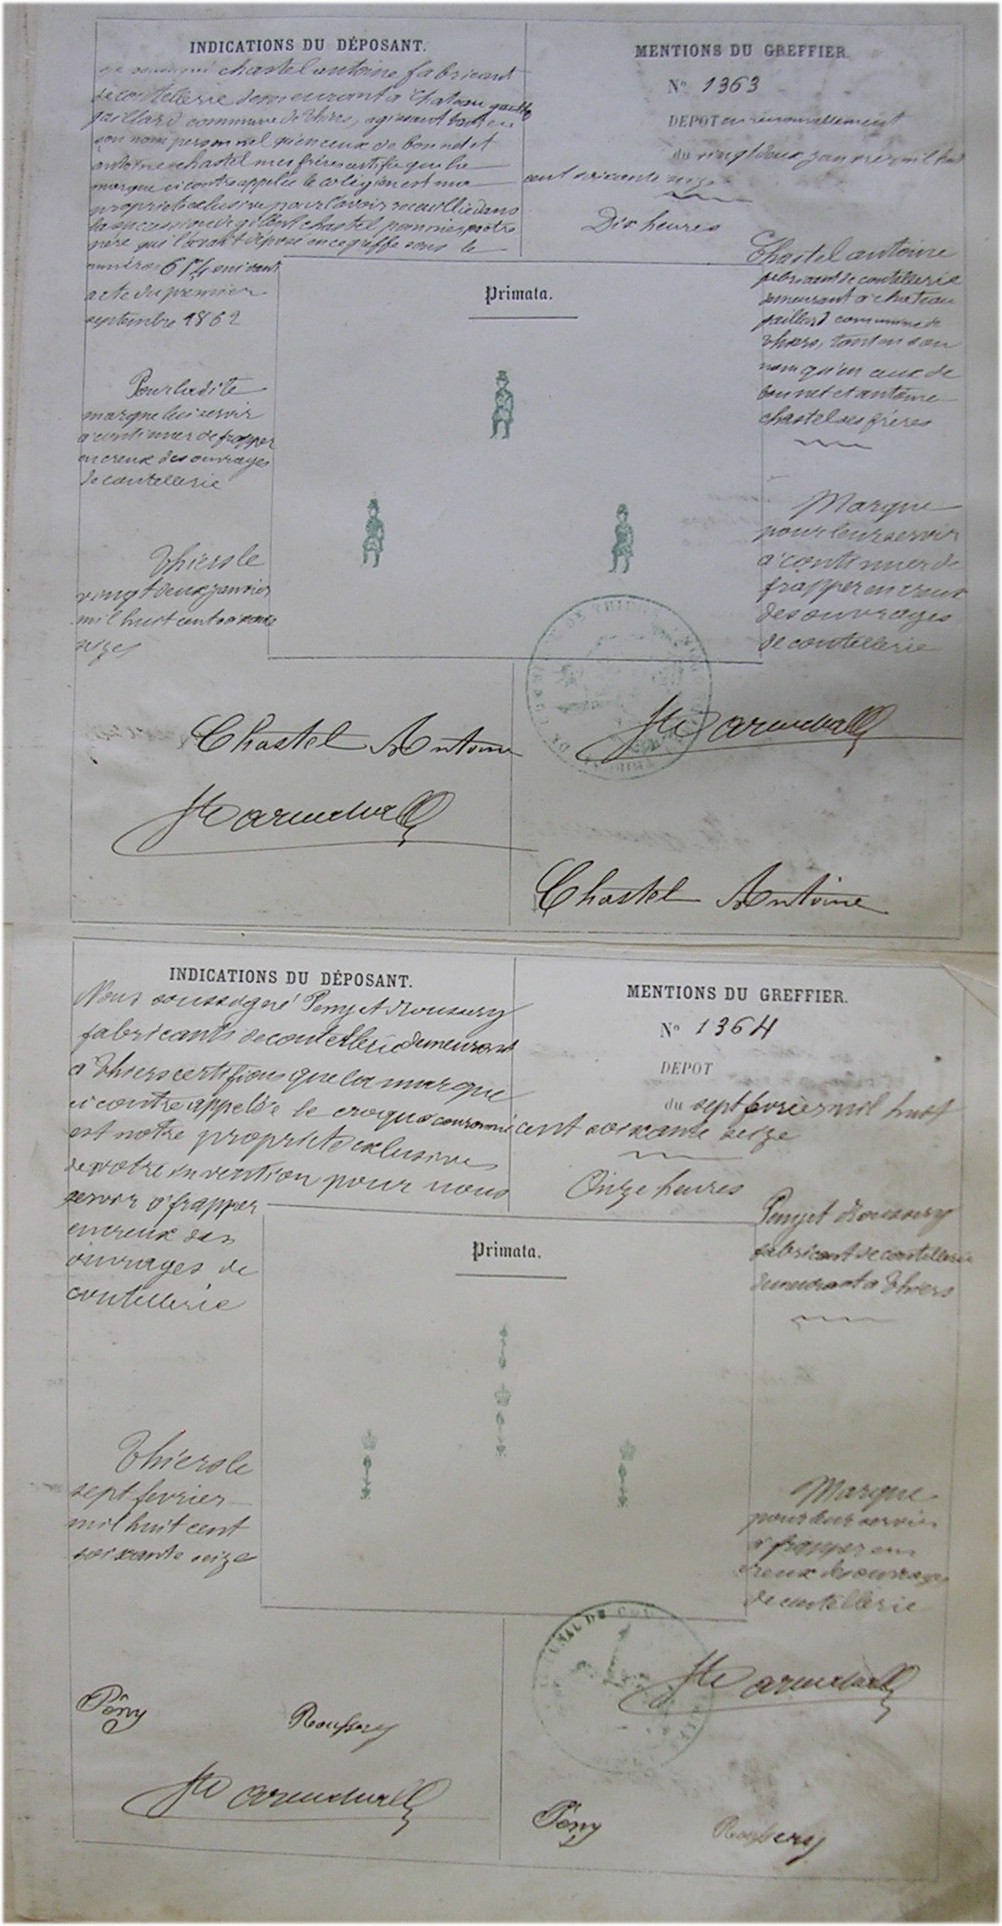 INDICATIONS DU DÉPOSANT.
chastel antoine fabricant
de coutellerie demeurant à Chateau
gaillard commune de Thiers, agissant tant en
son nom personnel qu'en ceux de bonnet et
antoine chastel mes frères certifie que la
marque ci contre appelée le colégien est ma
propriété exclusive pour l'avoir recueillie dans
la succession de gilbert chastel notre
père qui l'avait déposé en ce greffe sous le
numéro suivant
acte du premier
septembre 1862
Pour ladite
marque lui servir
à continuer de frapper
en creux des ouvrages
de coutellerie
Thiers le
vingt deux janvier
mil huit cent soixante
seize
Chastel Antoine
MENTIONS DU GREFFIER.
N° 1363
DEPOT en renouvellement
du vingt deux janvier mil huit
cent soixante seize
Dix heures
Chastel antoine
fabricant de coutellerie
demeurant à chateau
gaillard commune de
Thiers, tant en son
nom qu'en ceux de
bonnet et antoine
chastel ses frères
Primata.
Marque
pour leur servir
à continuer de
frapper en creux
des ouvrages
de coutellerie
Chastel Antoine
INDICATIONS DU DÉPOSANT.
Nous soussigné Pény et
fabricants de coutellerie demeurant
à Thiers certifions que la marque
ci contre appelée le croque couronné
est notre propriété exclusive
de notre invention pour nous
servir à frapper
en creux des
ouvrages de
coutellerie
Thiers le
sept fevrier
mil huit cent
soixante seize
Pény
MENTIONS DU GREFFIER.
N° 1364
DEPOT
du sept fevrier mil huit
cent soixante seize
Onze heures
Peny et
fabricant de coutellerie
demeurant à Thiers
Primata.
Marque
pour leur servir
à frapper en
creux des ouvrages
de coutellerie
TRIBUNAL DE
Pény